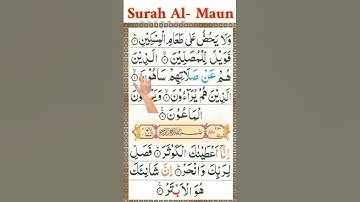 Surah Al- Maun
وَلَا يَحُضُّ عَلٰى طَعَامِ الْمِسْكِيْنِ
فَوَيْلٌ لِّلْمُصَلِّيْنَ الَّذِيْنَ
هُمْ عَنْ صَلَاتِهِمْ سَاهُوْنَ
الَّذِيْنَ هُمْ يُرَآءُوْنَ وَيَمْنَعُوْنَ
الْمَاعُوْنَ
اِنَّآ اَعْطَيْنٰكَ الْكَوْثَرَ فَصَلِّ
لِرَبِّكَ وَانْحَرْ اِنَّ شَانِئَكَ
هُوَ الْاَبْتَرُ